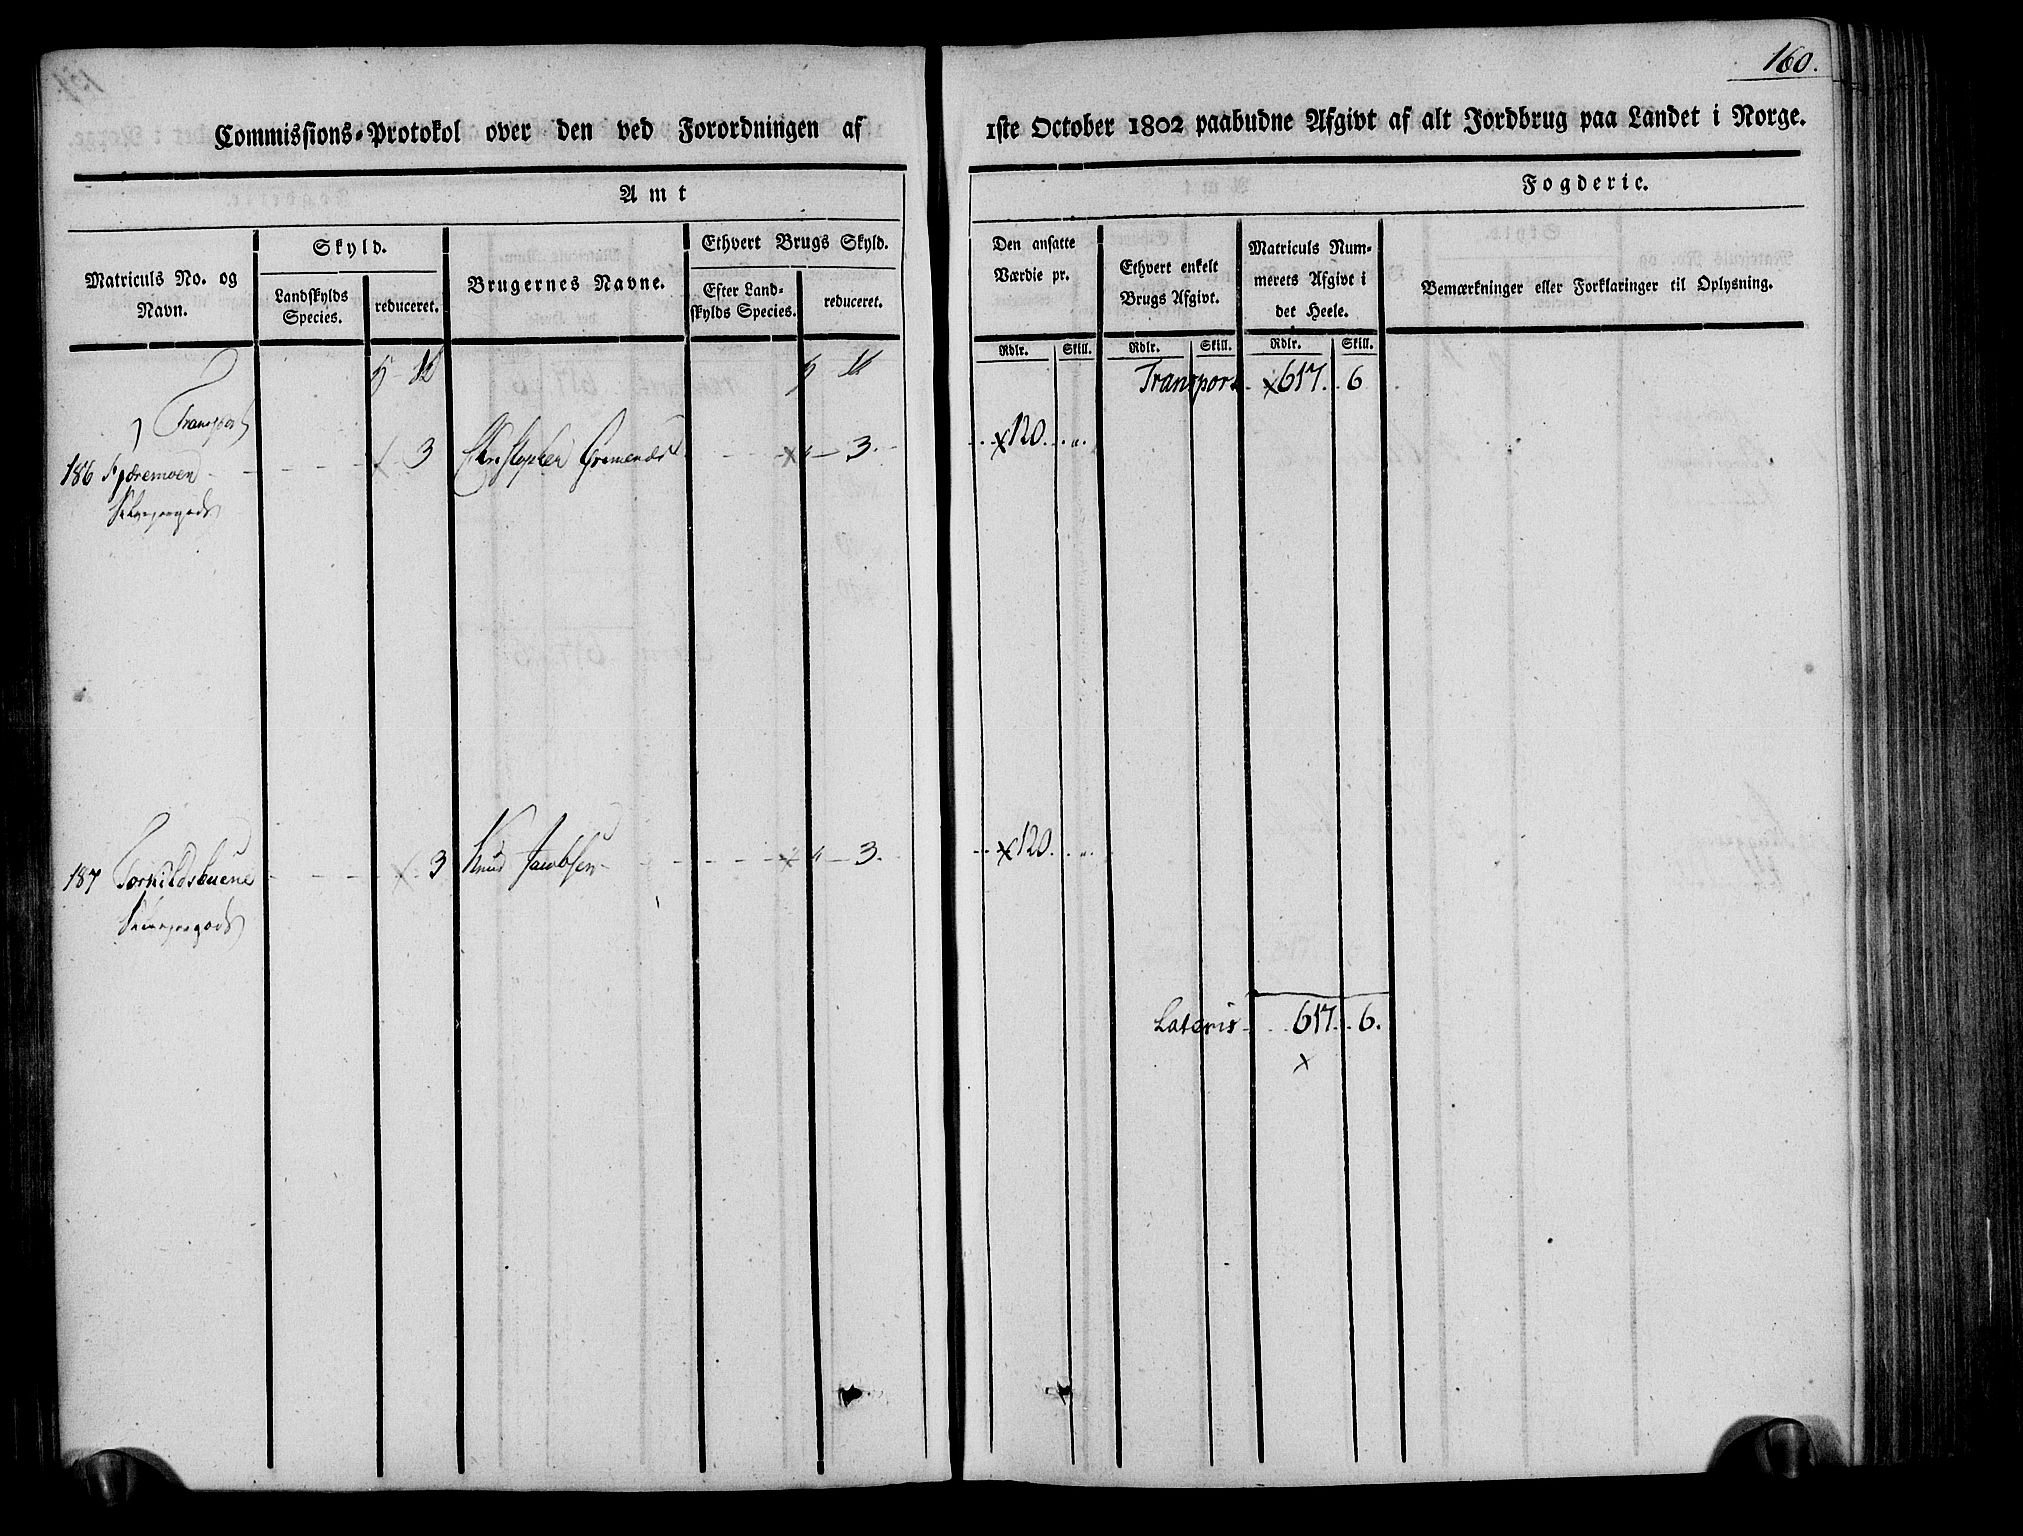 160.
Commissions-Protokol over den ved Forordningen af 1ste October 1802 paabudne Afgivt af alt Jordbrug paa Landet i Norge.
Amt
Fogderie.
Matriculs No. og Navn.
Skyld.
Landskylds Species.
reduceret.
Brugernes Navne.
Ethvert Brugs Skyld.
Efter Landskylds Species.
reduceret.
Den ansatte Værdie pr.
Rdlr. Skill.
Ethvert enkelt Brugs Afgivt.
Rdlr. Skill.
Matriculs Nummerets Afgivt i det Heele.
Rdlr. Skill.
Bemærkninger eller Forklaringer til Oplysning.
Transport
Transport x 617. 6
186 3 Christopher 3. x 120.
187 Torkildsbuene 3 Knud Jacobsen 3. x 120.
Lateris 617. 6.
x